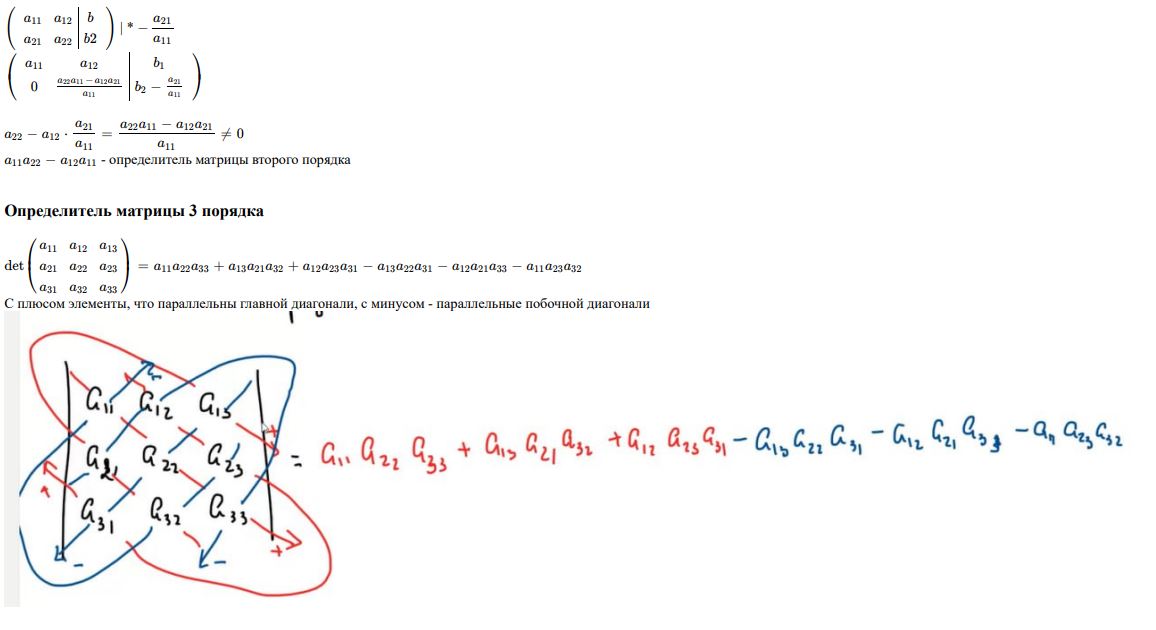 ( a₁₁ a₁₂ | b
a₂₁ a₂₂ | b2 ) | * − a₂₁/a₁₁
( a₁₁ a₁₂ | b₁
0 (a₂₂a₁₁ − a₁₂a₂₁)/a₁₁ | b₂ − a₂₁/a₁₁ )
a₂₂ − a₁₂ · a₂₁/a₁₁ = (a₂₂a₁₁ − a₁₂a₂₁)/a₁₁ ≠ 0
a₁₁a₂₂ − a₁₂a₁₁ - определитель матрицы второго порядка
Определитель матрицы 3 порядка
a₁₁ a₁₂ a₁₃
det ( a₂₁ a₂₂ a₂₃ ) = a₁₁a₂₂a₃₃ + a₁₃a₂₁a₃₂ + a₁₂a₂₃a₃₁ − a₁₃a₂₂a₃₁ − a₁₂a₂₁a₃₃ − a₁₁a₂₃a₃₂
a₃₁ a₃₂ a₃₃
С плюсом элементы, что параллельны главной диагонали, с минусом - параллельные побочной диагонали
a₁₁ a₁₂ a₁₃ +
a₂₁ a₂₂ a₂₃ = a₁₁ a₂₂ a₃₃ + a₁₃ a₂₁ a₃₂ + a₁₂ a₂₃ a₃₁ − a₁₃ a₂₂ a₃₁ − a₁₂ a₂₁ a₃₃ − a₁₁ a₂₃ a₃₂
a₃₁ a₃₂ a₃₃
− − +